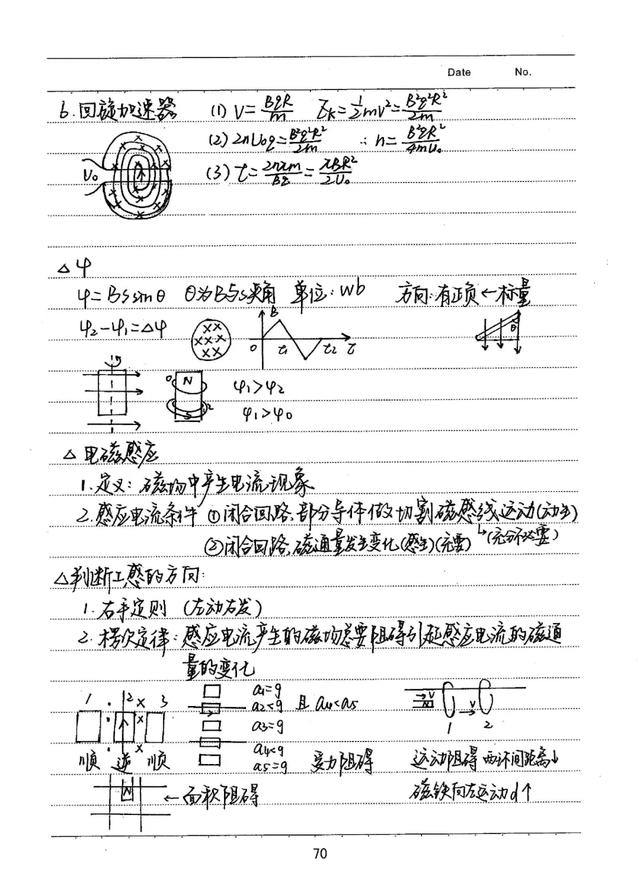 Date No.
6.回旋加速器 (1) V=BqR/m Ek=1/2mv²=B²q²R²/2m
(2) 2nU₀q=B²q²R²/2m ∴n=B²qR²/4mU₀
U₀ (3) t=2nπm/Bq=πBR²/2U₀
△φ
φ=BSsinθ θ为B与S夹角 单位:wb 方向:有正负←标量
φ₂-φ₁=△φ B 0 t₁ t₂ t θ
N φ₁>φ₂
S φ₁>φ₀
△电磁感应
1.定义:磁场中产生电流现象
2.感应电流条件 ①闭合回路,部分导体做切割磁感线运动(动生)
②闭合回路,磁通量发生变化(感生)(充要) ↳(充分不必要)
△判断I感的方向:
1.右手定则 (左动右发)
2.楞次定律:感应电流产生的磁场总要阻碍引起感应电流的磁通
量的变化
1 2 3 a₁=g
a₂<g 且a₄<a₅ V N V
a₃=g 1 2
a₄<g
顺 逆 顺 a₅=g 受力阻碍 运动阻碍 两环间距离↓
N ←面积阻碍 磁铁向左运动d↑
70